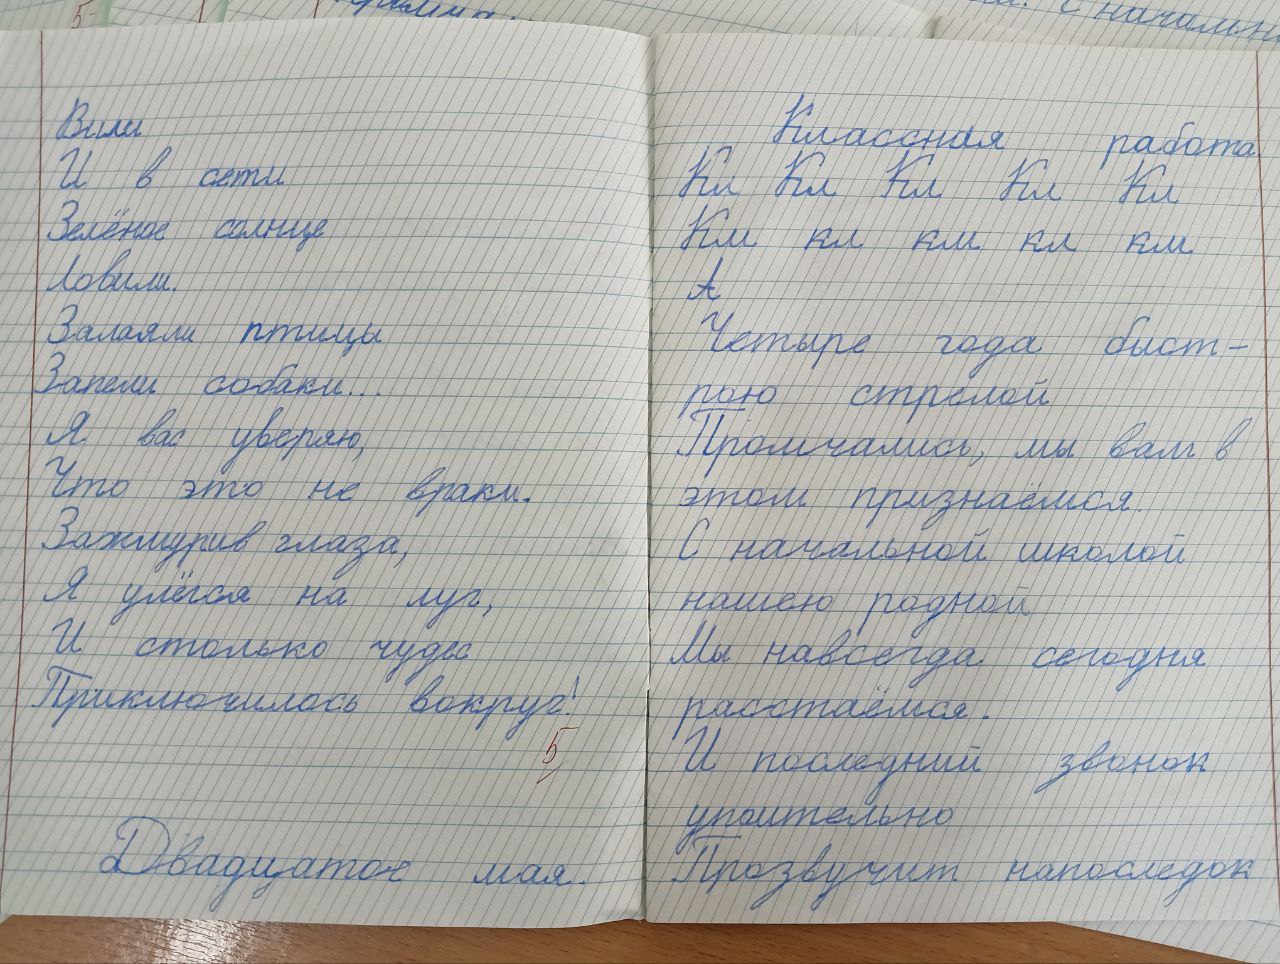 Вили
И в сети
Зелёное солнце
Ловили.
Залаяли птицы
Запели собаки...
Я вас уверяю,
Что это не враки.
Зажмурив глаза,
Я улёгся на луг,
И столько чудес
Приключилось вокруг!
5
Двадцатое мая.
Классная работа
Кл Кл Кл Кл Кл
Км кл км кл км
А
Четыре года быст-
рою стрелой
Промчались, мы вам в
этом признаёмся.
С начальной школой
нашею родной
Мы навсегда сегодня
расстаёмся.
И последний звонок
упоительно
Прозвучит напоследок
5
С начально